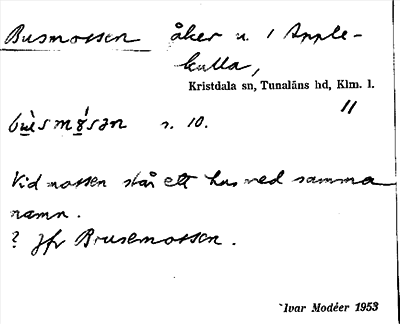 Busmossen åker n. 1 Apple-
kulla,
Kristdala sn, Tunaläns hd, Klm. l.
11
s. 10.
Vid mossen står ett hus med samma
namn.
? Jfr Brusemossen.
Ivar Modéer 1953